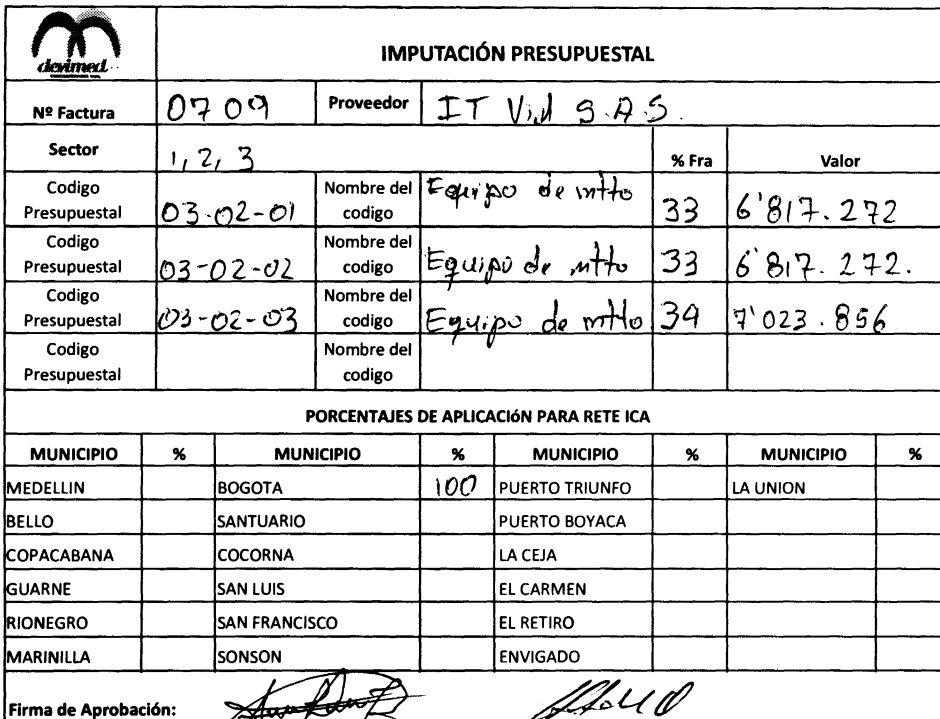 devimed
IMPUTACIÓN PRESUPUESTAL
Nº Factura 0709 Proveedor IT Vial S.A.S.
Sector 1, 2, 3 % Fra Valor
Codigo Presupuestal 03-02-01 Nombre del codigo Equipo de mtto 33 6'817.272
Codigo Presupuestal 03-02-02 Nombre del codigo Equipo de mtto 33 6'817.272.
Codigo Presupuestal 03-02-03 Nombre del codigo Equipo de mtto 34 7'023.856
Codigo Presupuestal Nombre del codigo
PORCENTAJES DE APLICACIÓN PARA RETE ICA
MUNICIPIO % MUNICIPIO % MUNICIPIO % MUNICIPIO %
MEDELLIN BOGOTA 100 PUERTO TRIUNFO LA UNION
BELLO SANTUARIO PUERTO BOYACA
COPACABANA COCORNA LA CEJA
GUARNE SAN LUIS EL CARMEN
RIONEGRO SAN FRANCISCO EL RETIRO
MARINILLA SONSON ENVIGADO
Firma de Aprobación: